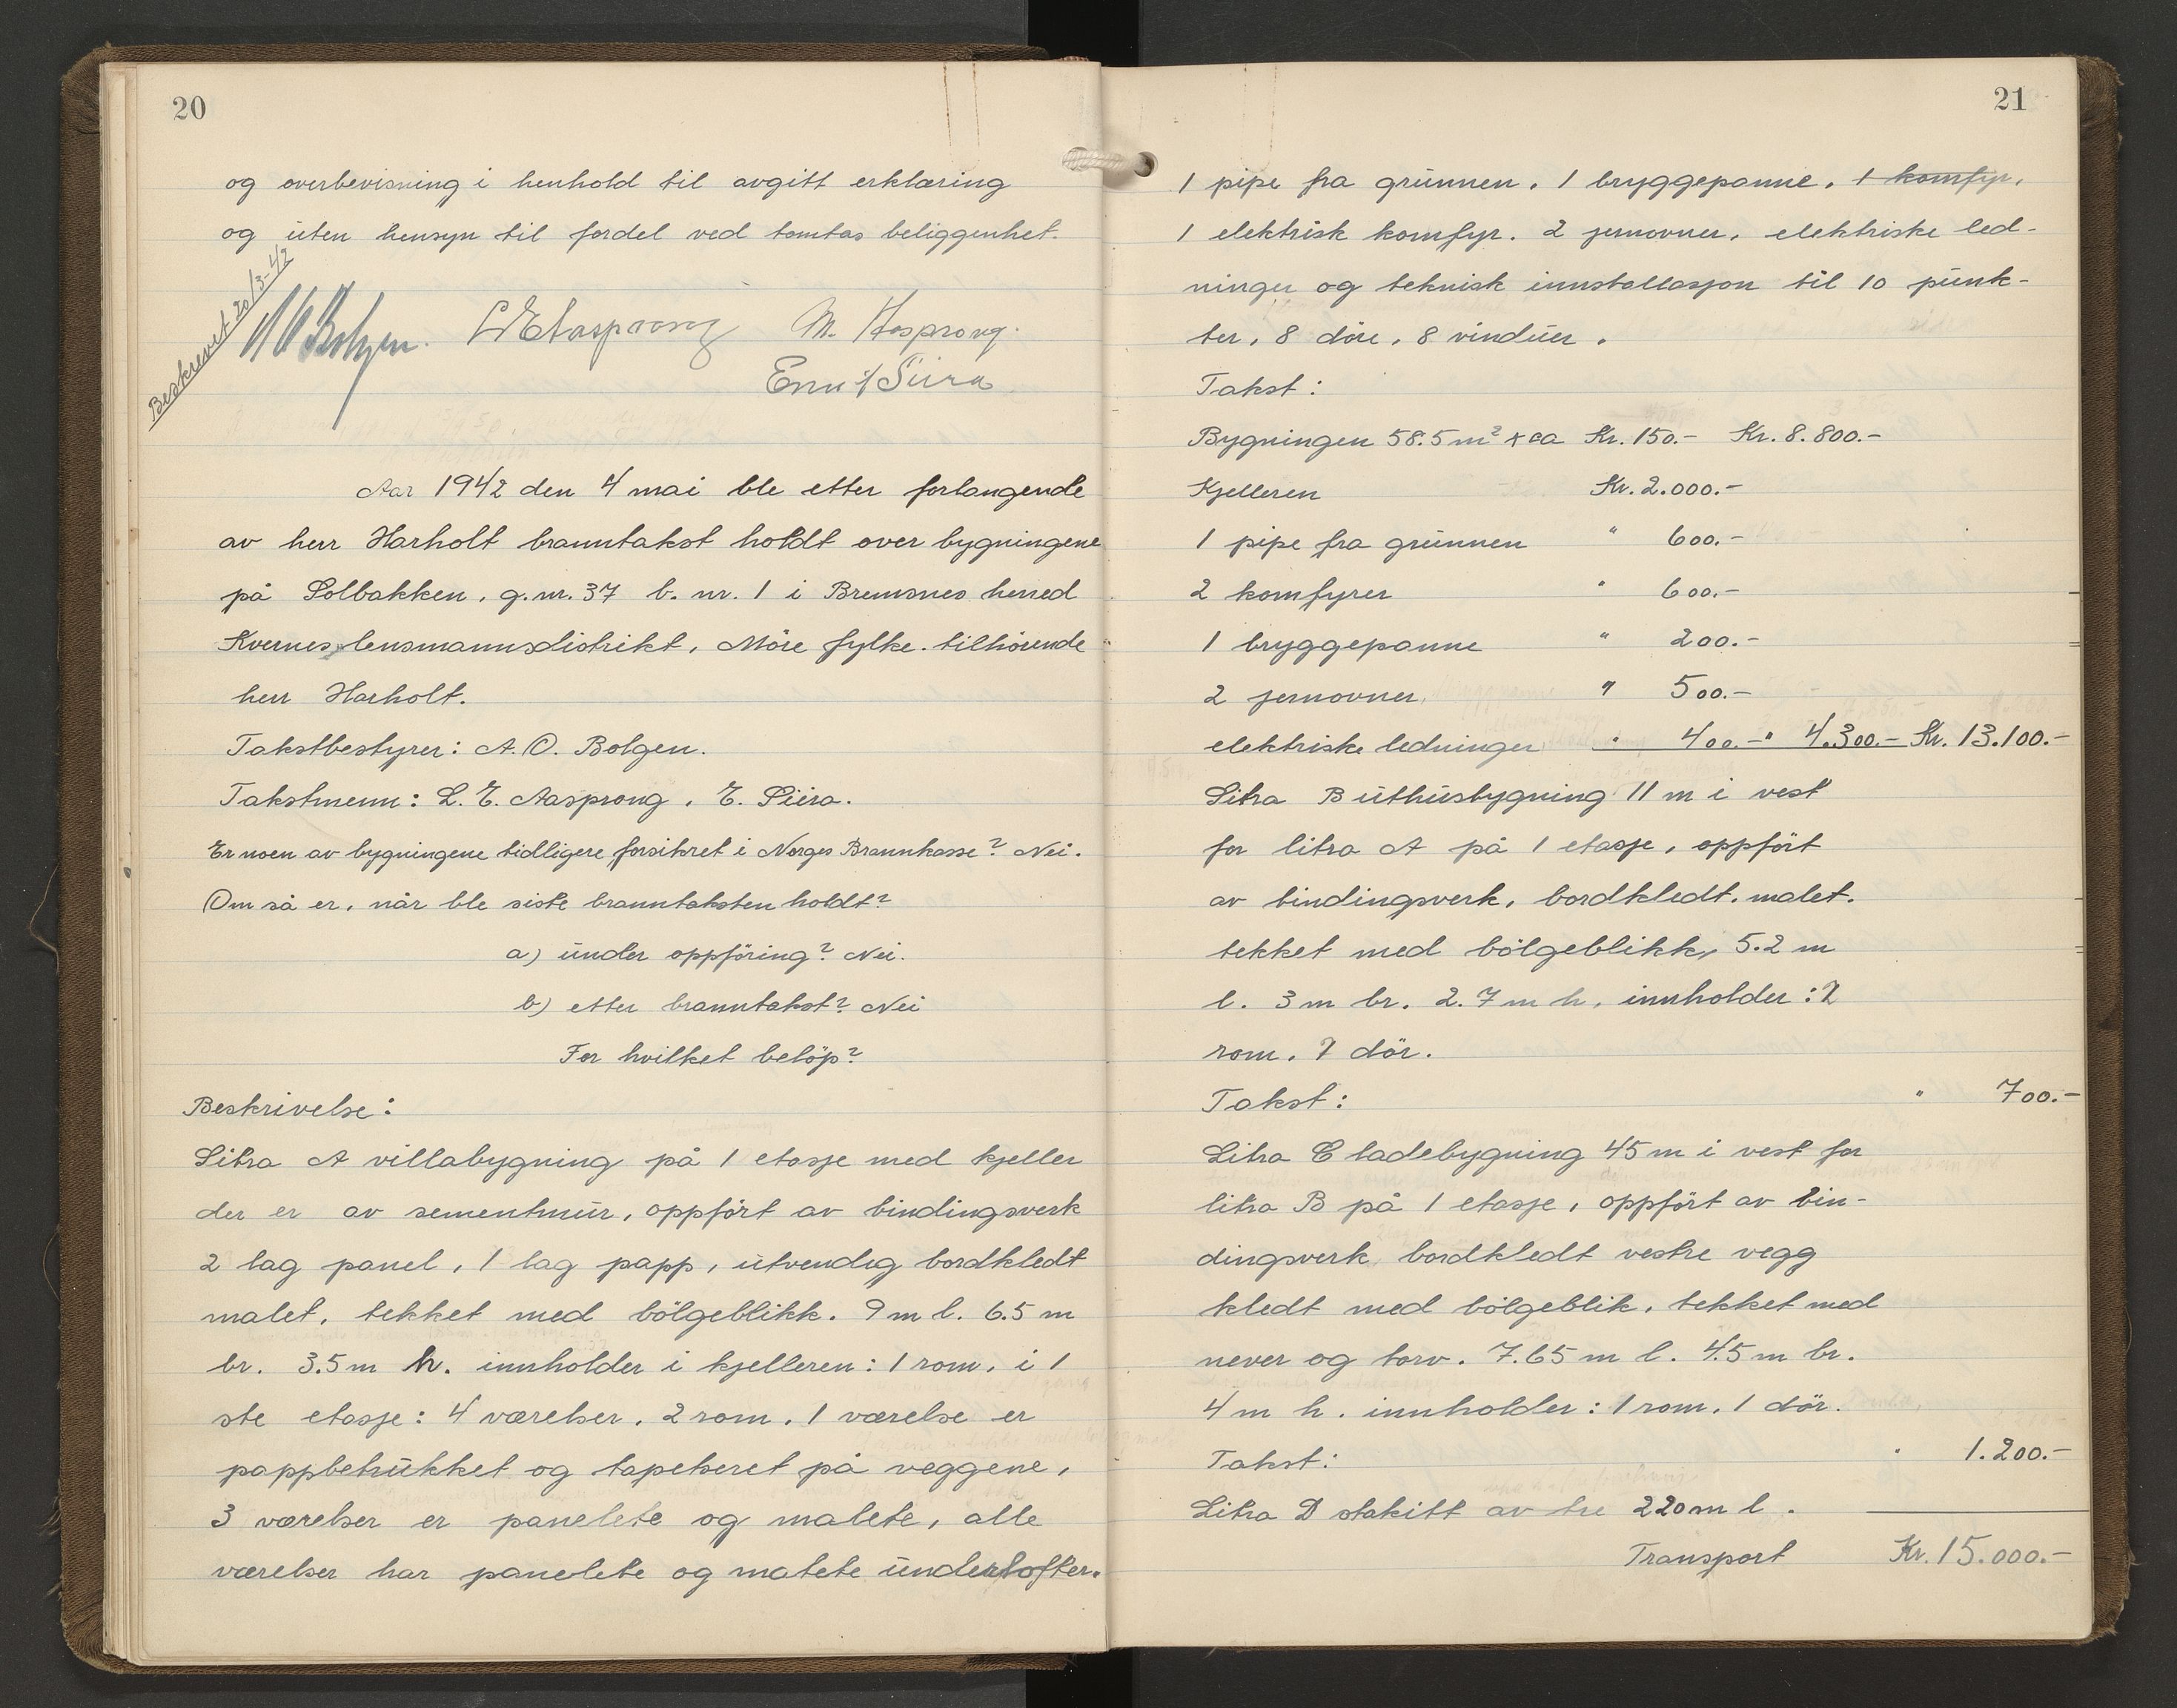 20
og overbevisning i henhold til avgitt erklæring
og uten hensyn til fordel ved tomtas beliggenhet.
Beskrevet 20/3-42
A O Bolgen. L E Aasprong M. Aasprong.
Siira
Aar 1942 den 4 mai ble etter forlangende
av herr Harholt branntakst holdt over bygningene
på Solbakken, g.nr. 37 b. nr. 1 i Bremsnes herred
Kvernes lensmannsdistrikt, Möre fylke. tilhörende
herr Harholt.
Takstbestyrer: A. O. Bolgen.
Takstmenn: L. E. Aasprong, E. Siira.
Er noen av bygningene tidligere forsikret i Norges Brannkasse? Nei.
Om så er, når ble siste branntaksten holdt?
a) under oppföring? Nei.
b) etter branntakst? Nei
For hvilket belöp?
Beskrivelse:
Litra A villabygning på 1 etasje med kjeller
der er av sementmur, oppfört av bindingsverk
2 lag panel, 1 lag papp, utvendig bordkledt
malet, tekket med bölgeblikk. 9 m l. 6.5 m
br. 3.5 m h. innholder i kjelleren: 1 rom, i 1
ste etasje: 4 værelser, 2 rom. 1 værelse er
pappbetrukket og tapetseret på veggene,
3 værelser er panelete og malete, alle
værelser har panelete og malete underlofter.
21
1 pipe fra grunnen, 1 bryggepanne, 1 komfyr,
1 elektrisk komfyr. 2 jernovner, elektriske led-
ninger og teknisk innstallasjon til 10 punk-
ter, 8 döre, 8 vinduer.
Takst:
Bygningen 58.5 m² x ca Kr. 150.- Kr. 8.800.-
Kjelleren Kr. 2.000.-
1 pipe fra grunnen " 600.-
2 komfyrer " 600.-
1 bryggepanne " 200.-
2 jernovner " 500.-
elektriske ledninger " 400.- " 4.300.- Kr. 13.100.-
Litra B uthusbygning 11 m i vest
for litra A på 1 etasje, oppfört
av bindingsverk, bordkledt. malet.
tekket med bölgeblikk, 5.2 m
l. 3 m br. 2.7 m h, innholder: 2
rom. 2 dör.
Takst: " 700.-
Litra C ladebygning 45 m i vest for
litra B på 1 etasje, oppfört av bin-
dingsverk, bordkledt vestre vegg
kledt med bölgeblik, tekket med
never og torv. 7.65 m l. 4.5 m br.
4 m h. innholder: 1 rom, 1 dör.
Takst: " 1.200.-
Litra D stakitt av tre 220 m l.
Transport Kr. 15.000.-